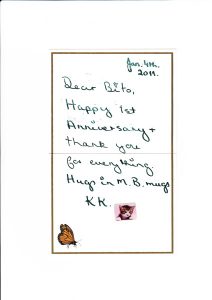 Jan. 4th.
2011.
Dear Bito,
Happy 1st
Anniversary +
thank you
for everything.
Hugs in M.B. mugs
KK.